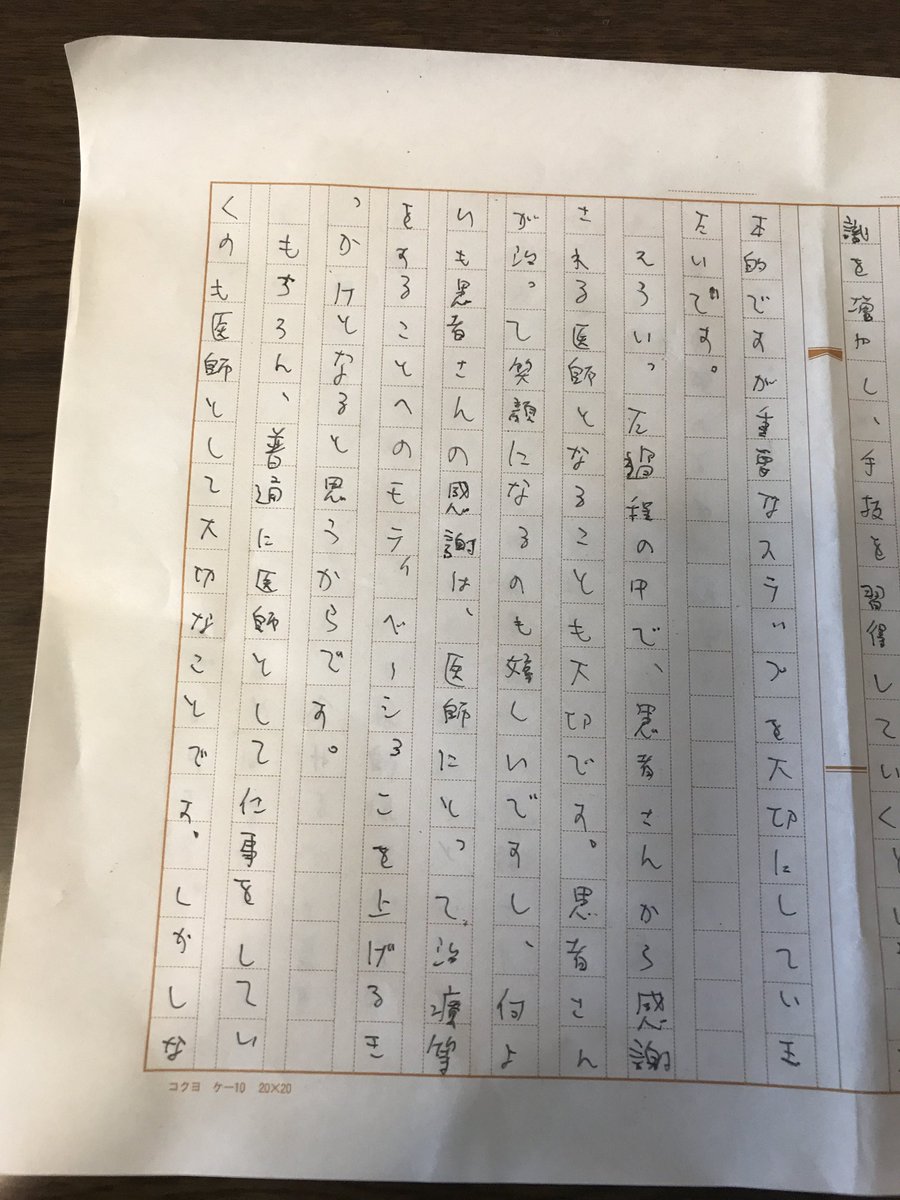 識を増やし、手技を習得していくとい
本的ですが重要なステップを大切にしていき
たいです。
そういった過程の中で、患者さんから感謝
される医師となることも大切です。患者さん
が治って笑顔になるのも嬉しいですし、何よ
りも患者さんの感謝は、医師にとって、治療等
をすることへのモティベーションを上げるき
っかけとなると思うからです。
もちろん、普通に医師として仕事をしてい
くのも医師として大切なことです。しかしな
コクヨ ケー10 20×20